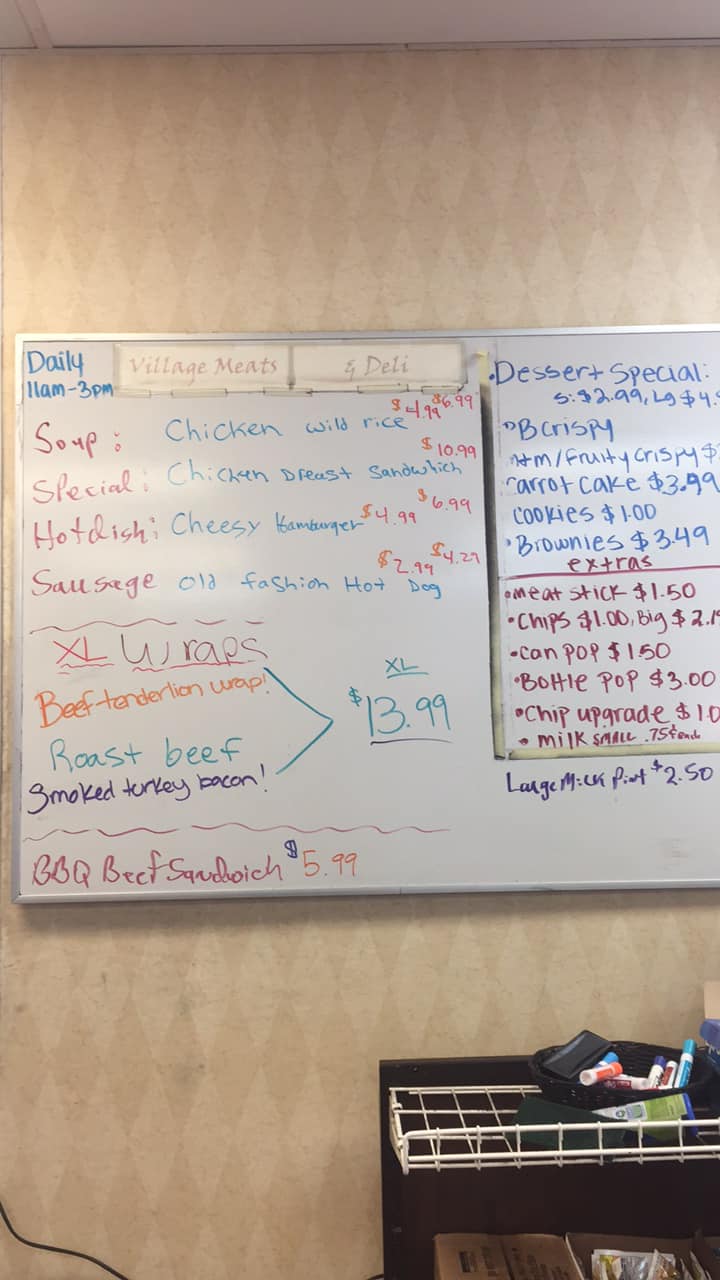 Daily
11am-3pm
Village Meats & Deli
Soup: Chicken wild rice $4.99 $6.99
Special: Chicken Breast Sandwhich $10.99
Hotdish: Cheesy Hamburger $4.99 $6.99
Sausage old fashion Hot Dog $2.99 $4.29
XL Wraps
Beef-tenderlion wrap!
Roast beef
Smoked turkey bacon!
XL
$13.99
BBQ Beef Sandwich $5.99
• Dessert Special:
S: $2.99, Lg $4.
Bcrispy
m/fruity crispy $
carrot cake $3.99
cookies $1.00
• Brownies $3.49
extras
• meat stick $1.50
• Chips $1.00, Big $2.1
• can pop $1.50
• Bottle pop $3.00
• Chip upgrade $1.0
• milk small .75¢ each
Large Milk Pint $2.50